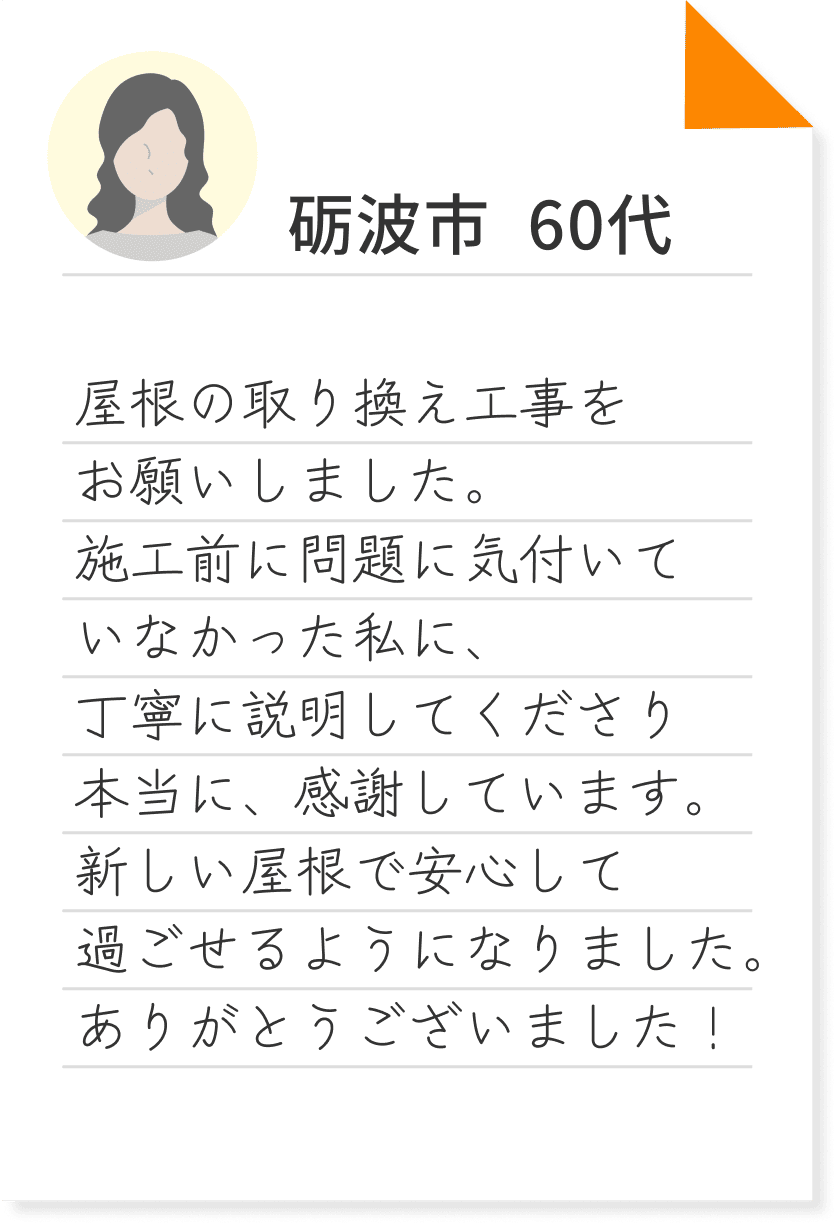 砺波市 60代
屋根の取り換え工事を
お願いしました。
施工前に問題に気付いて
いなかった私に、
丁寧に説明してくださり
本当に、感謝しています。
新しい屋根で安心して
過ごせるようになりました。
ありがとうございました！